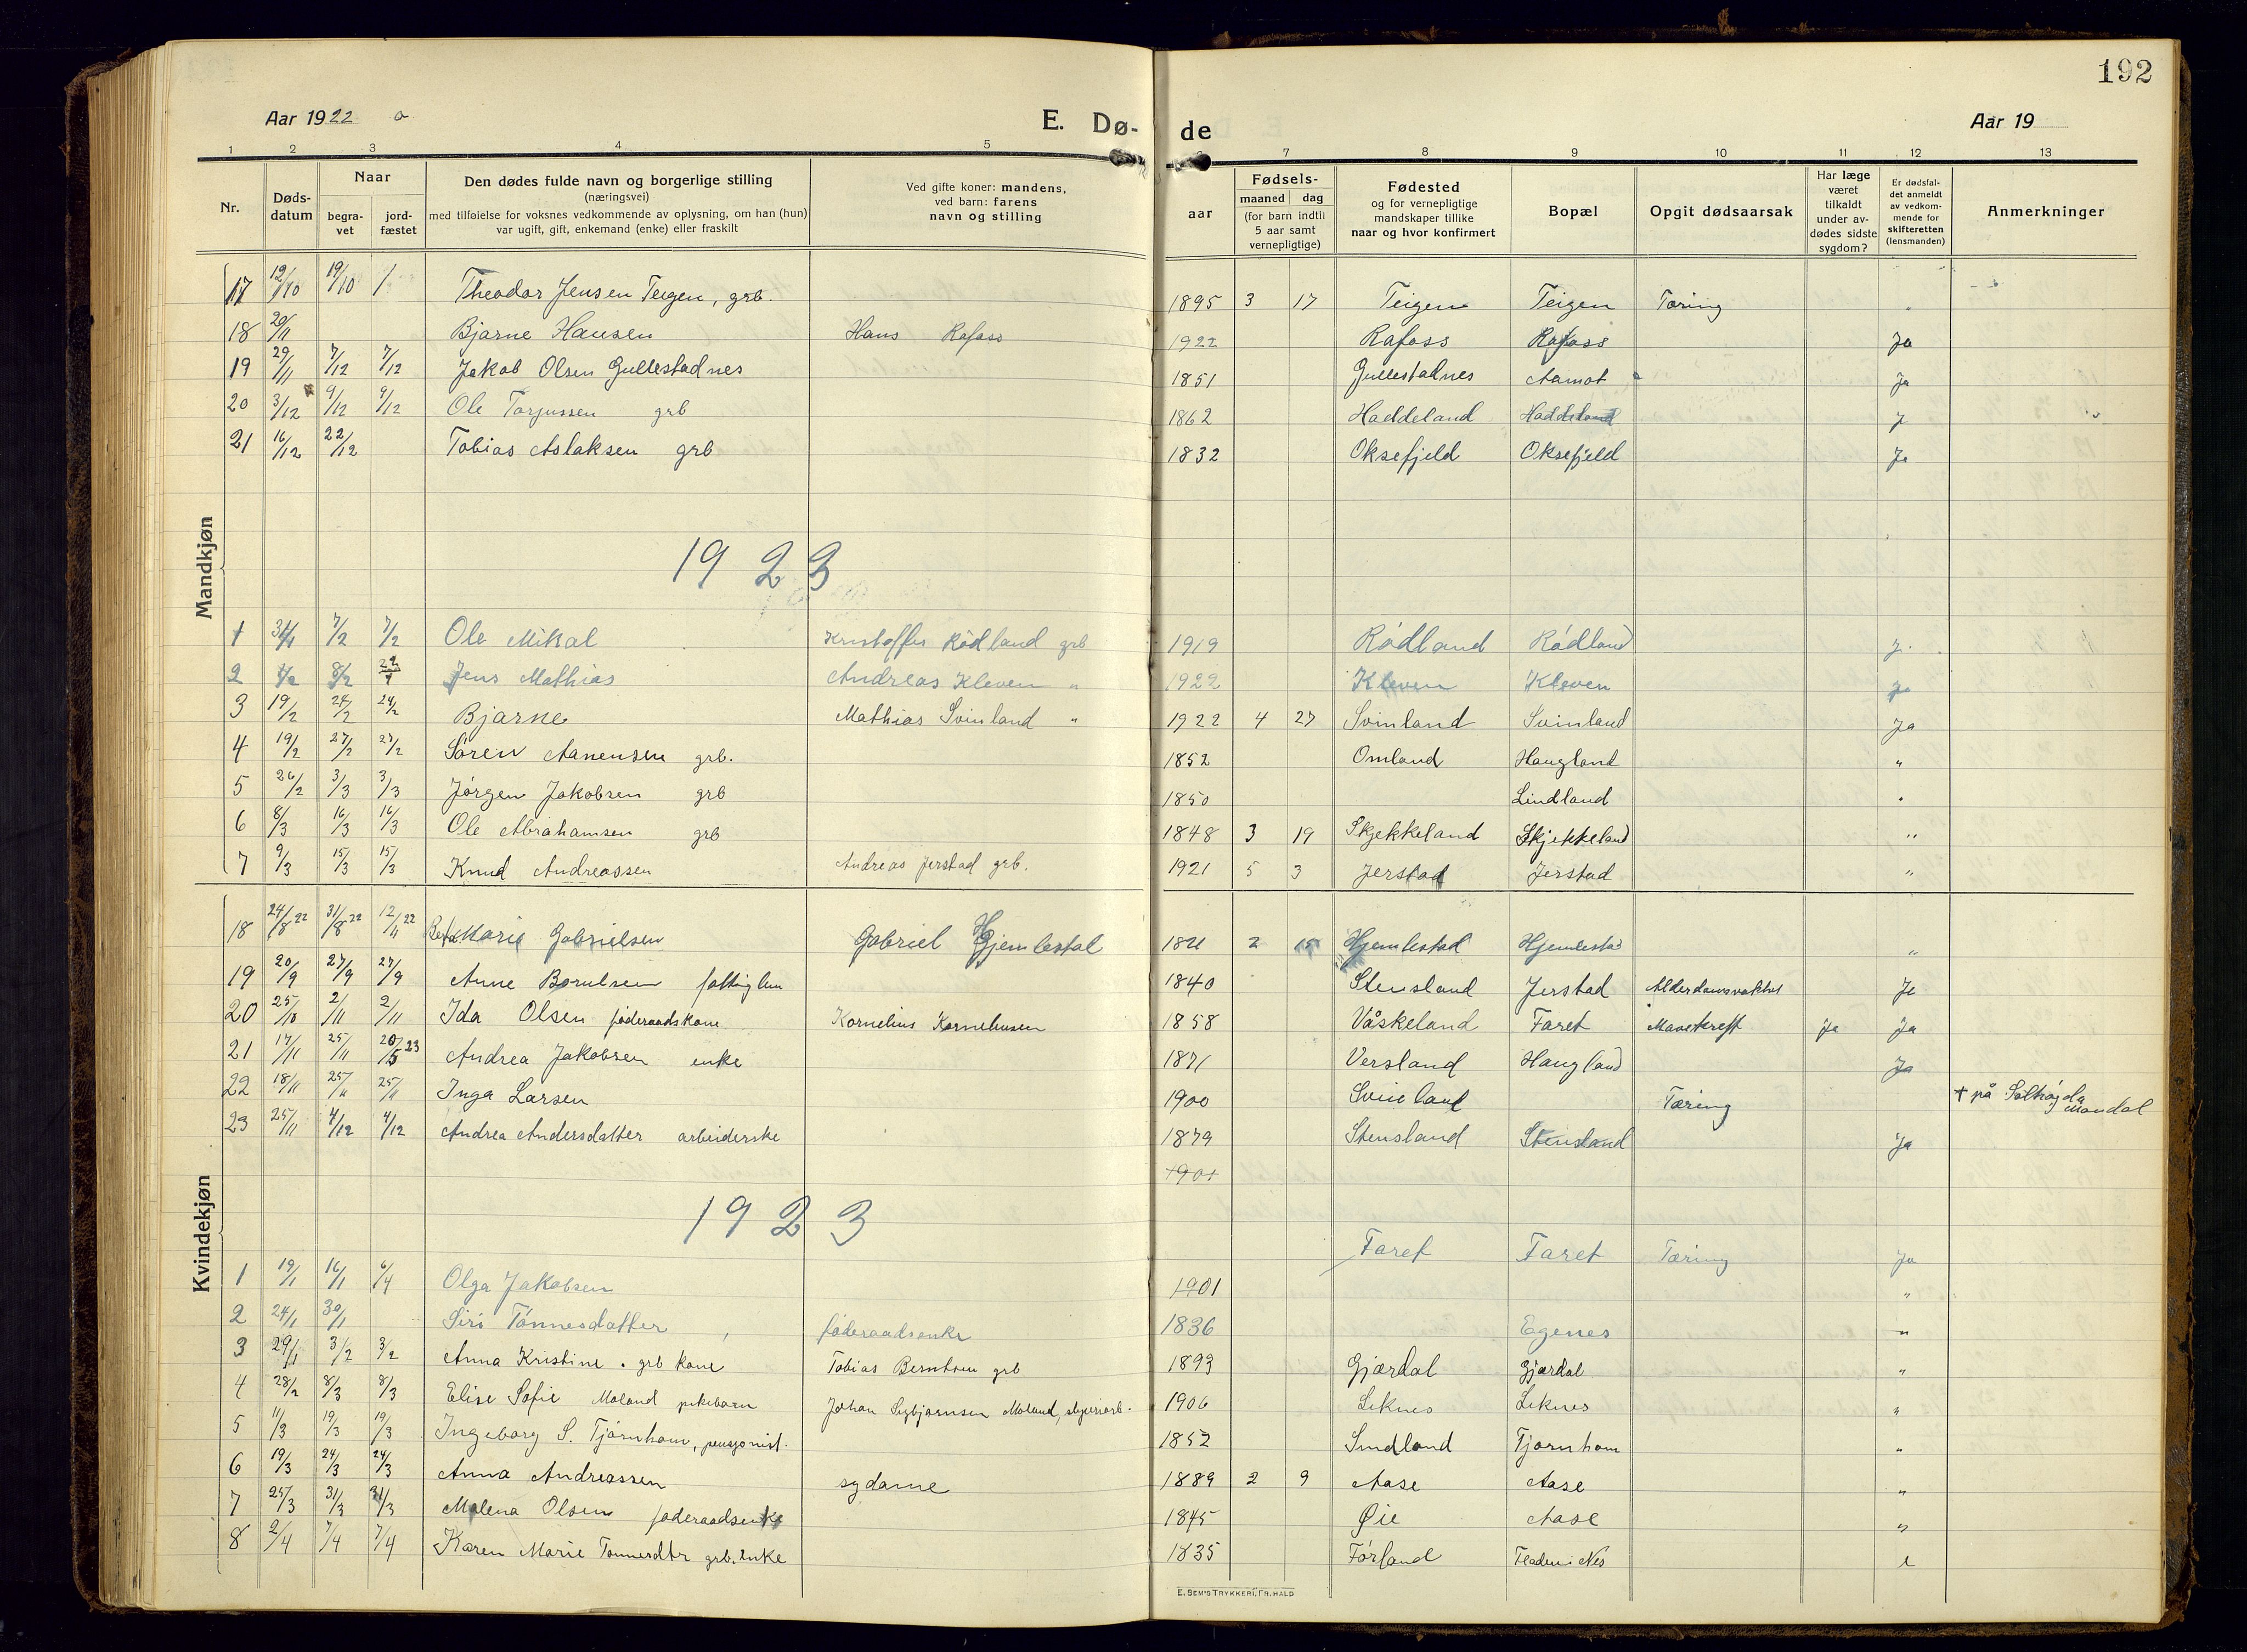 192
Aar 1922
E. Dø-
de
Aar 19
1 2 3 4 5 6 7 8 9 10 11 12 13
Nr.
Døds-
datum
Naar
begra-
vet
jord-
fæstet
Den dødes fulde navn og borgerlige stilling
(næringsvei)
med tilføielse for voksnes vedkommende av oplysning, om han (hun)
var ugift, gift, enkemand (enke) eller fraskilt
Ved gifte koner: mandens,
ved barn: farens
navn og stilling
Fødsels-
aar
maaned dag
(for barn indtil
5 aar samt
vernepligtige)
Fødested
og for vernepligtige
mandskaper tillike
naar og hvor konfirmert
Bopæl
Opgit dødsaarsak
Har læge
været
tilkaldt
under av-
dødes sidste
sygdom?
Er dødsfal-
det anmeldt
av vedkom-
mende for
skifteretten
(lensmanden)
Anmerkninger
Mandkjøn
17 12/10 19/10 Theodor Jensen Teigen, grb. 1895 3 17 Teigen Teigen Tæring "
18 20/11 Bjarne Hansen Hans Rafoss 1922 Rafoss Rafoss Ja
19 29/11 7/12 7/12 Jakob Olsen Gullestadnes 1851 Gullestadnes Aamot Ja
20 3/12 9/12 9/12 Ole Torjussen grb 1862 Haddeland Haddeland J
21 16/12 22/12 Tobias Aslaksen grb 1832 Oksefjeld Oksefjeld Ja
1923
1 31/1 7/2 7/2 Ole Mikal Kristoffer Rödland grb 1919 Rödland Rödland J.
2 8/2 Jens Mathias Andreas Kleven " 1922 Kleven Kleven Ja
3 19/2 24/2 24/2 Bjarne Mathias Svinland " 1922 4 27 Svinland Svinland Ja
4 19/2 27/2 27/2 Sören Aanensen grb. 1852 Omland Haugland "
5 26/2 3/3 3/3 Jörgen Jakobsen grb 1850 Lindland "
6 8/3 16/3 16/3 Ole Abrahamsen grb 1848 3 19 Skjekkeland Skjekkeland "
7 9/3 15/3 15/3 Knud Andreassen Andreas Jerstad grb. 1921 5 3 Jerstad Jerstad "
Kvindekjøn
18 24/8 22 31/8 22 12/11 22 Marie Gabrielsen Gabriel 2 15 Hjemlestad Hjemlestad "
19 20/9 27/9 27/9 Anne fattiglem 1840 Stensland Jerstad Ja
20 25/10 2/11 2/11 Ida Olsen föderaadskone Kornelius Korneliusen 1858 Våskeland Faret Mavekreft Ja Ja
21 17/11 25/11 20/5 23 Andrea Jakobsen enke 1871 Versland Haugland Ja
22 18/11 25/11 25/11 Inga Larsen 1900 Svineland Tæring † på Solhögda Mandal
23 25/11 4/12 4/12 Andrea Andersdatter arbeiderske 1879 Stensland Stensland Ja
1901
1923
1 19/1 16/1 6/4 Olga Jakobsen 1901 Faret Faret Tæring Ja
2 24/1 30/1 Siri Tönnesdatter, föderaadsenke 1836 Egenes "
3 29/1 3/2 3/2 Anna Kristine. grb kone Tobias grb 1893 Gjærdal Gjærdal "
4 28/2 8/3 8/3 Elise Sofie Moland pikebarn Johan Moland, 1906 Leknes Leknes "
5 11/3 19/3 19/3 Ingeborg S. Tjörnhom, pensjonist. 1852 Tjörnhom "
6 19/3 24/3 24/3 Anna Andreassen sydame 1889 2 9 Aase Aase "
7 25/3 31/3 31/3 Malena Olsen föderaadsenke 1845 Øie Aase "
8 2/4 7/4 7/4 Karen Marie Tønnesdtr grb. enke 1835 Förland Fladen i Nes
E. SEM'S TRYKKERI, FR.HALD